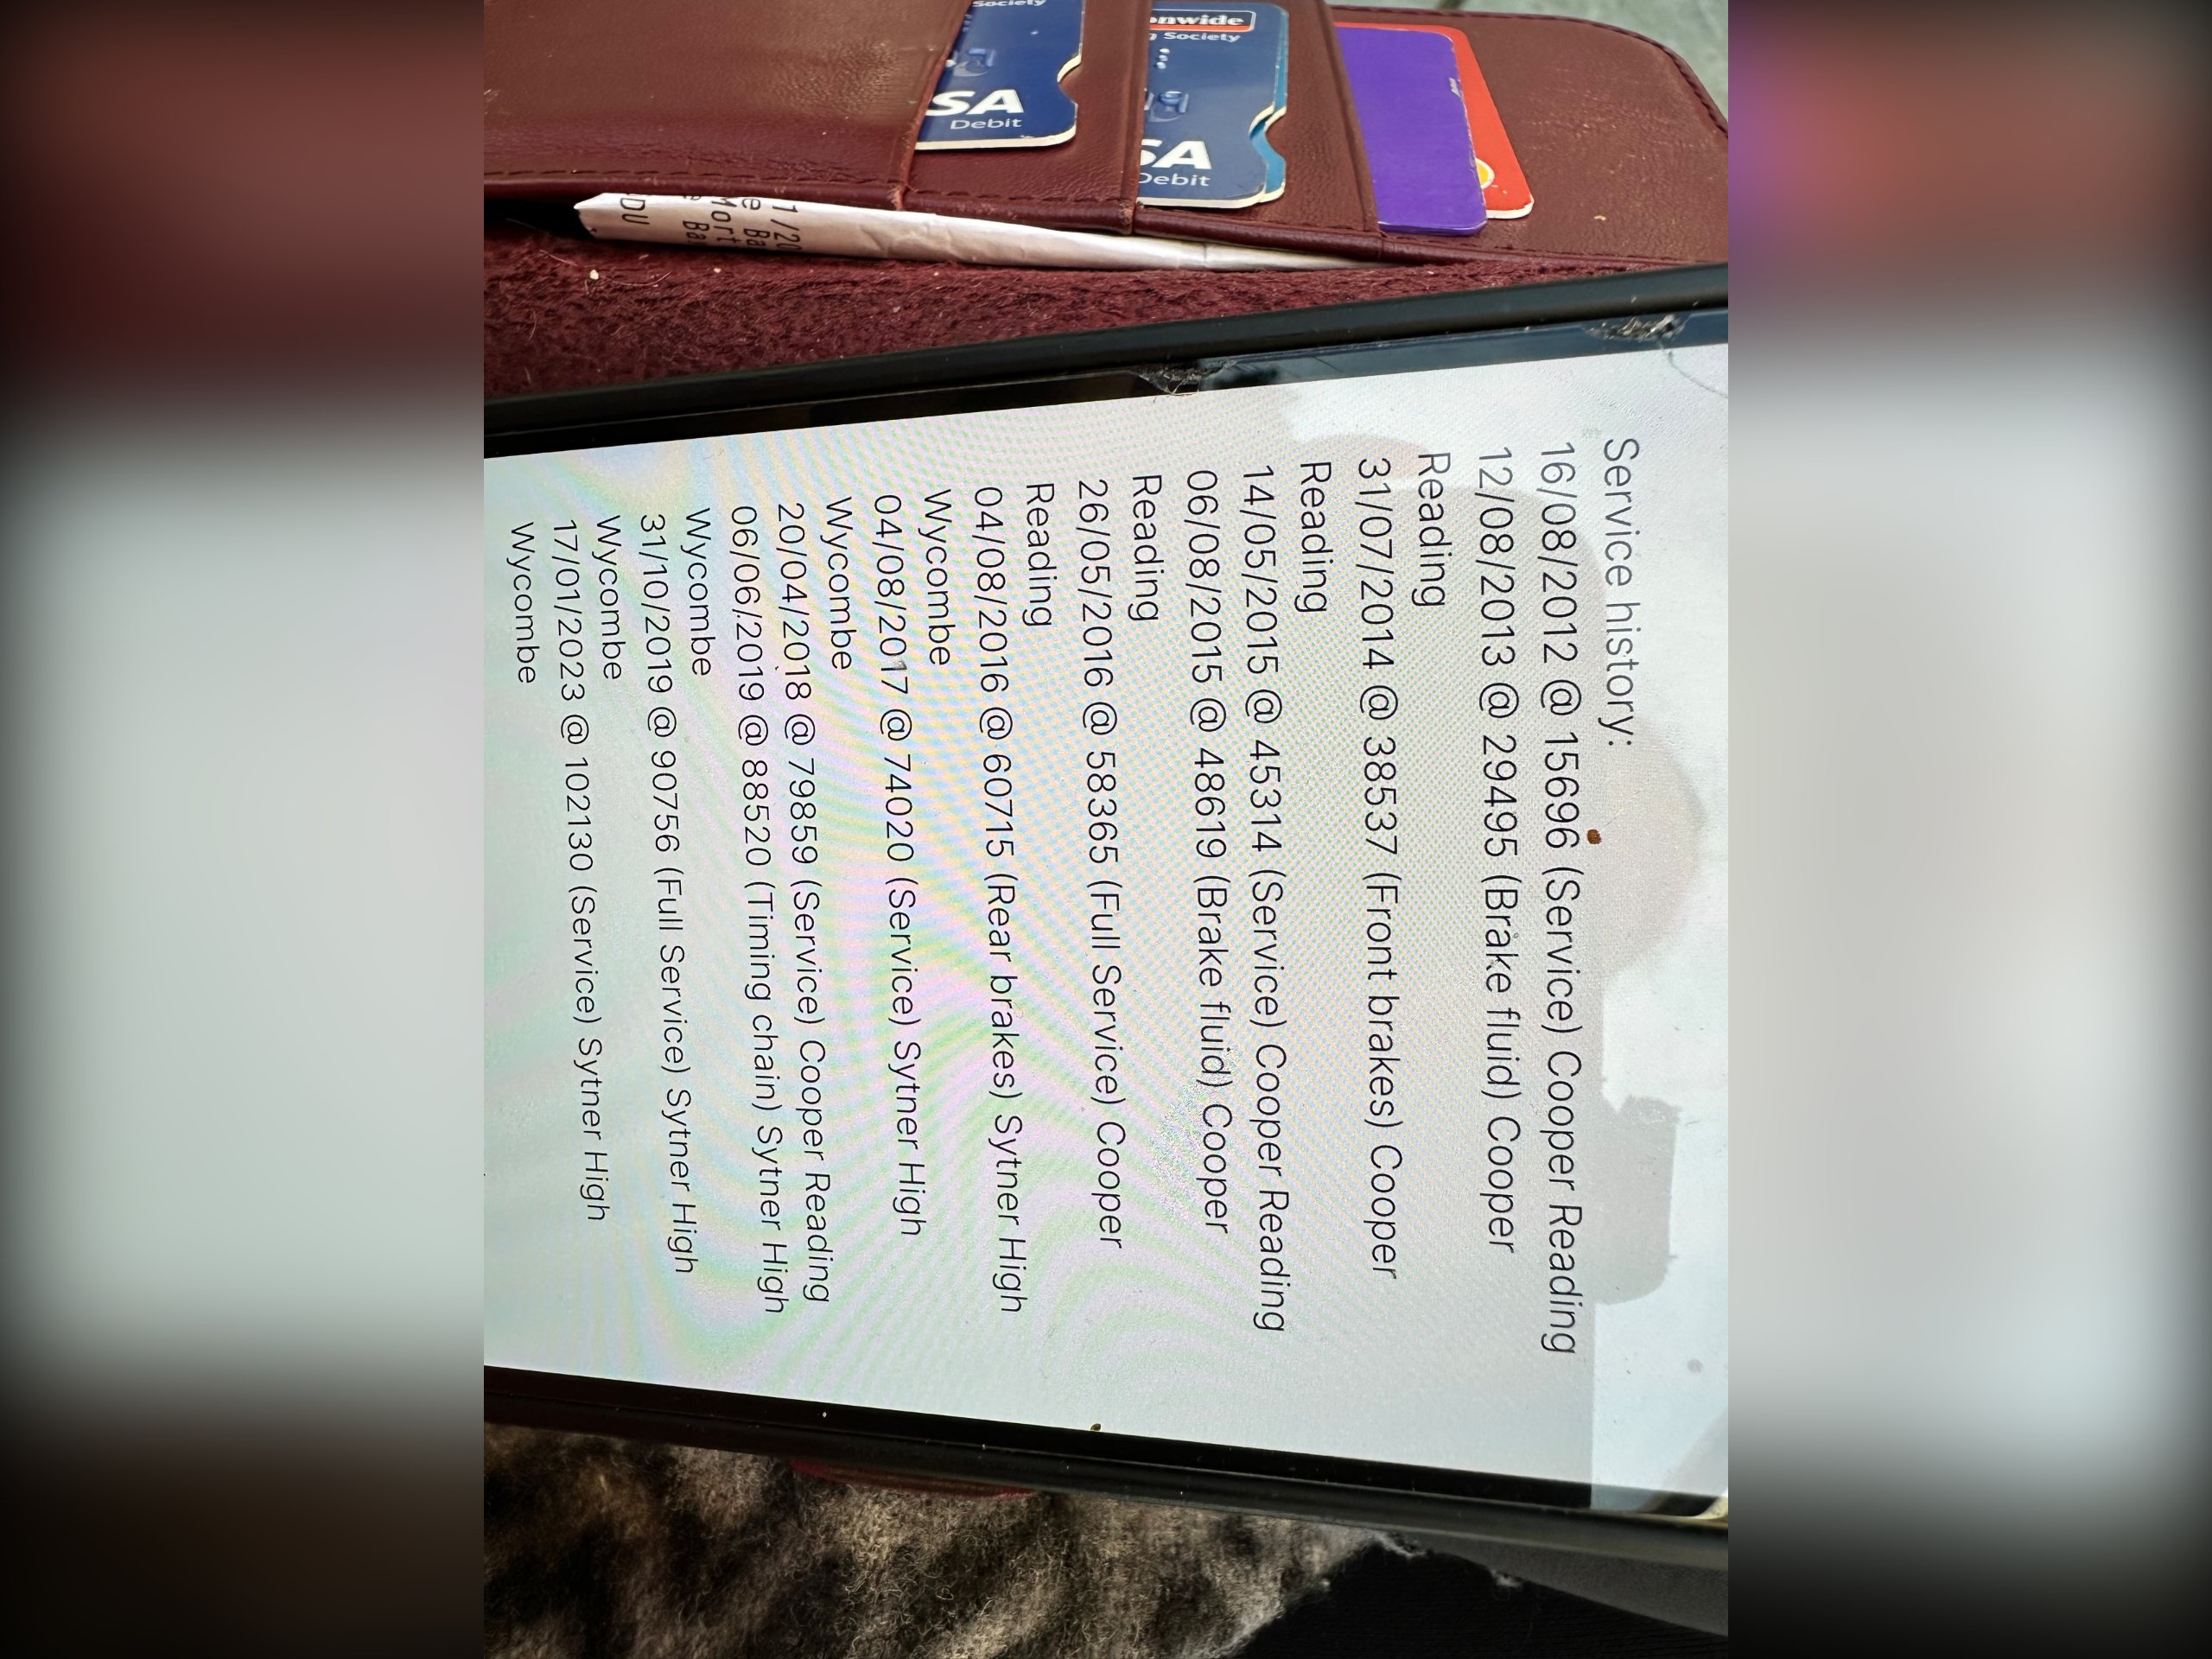 Society
SA
Debit
onwide
g Society
SA
Debit
1/20
e Ba
Mort
Ba
DU
Service history:
16/08/2012 @ 15696 (Service) Cooper Reading
12/08/2013 @ 29495 (Brake fluid) Cooper
Reading
31/07/2014 @ 38537 (Front brakes) Cooper
Reading
14/05/2015 @ 45314 (Service) Cooper Reading
06/08/2015 @ 48619 (Brake fluid) Cooper
Reading
26/05/2016 @ 58365 (Full Service) Cooper
Reading
04/08/2016 @ 60715 (Rear brakes) Sytner High
Wycombe
04/08/2017 @ 74020 (Service) Sytner High
Wycombe
20/04/2018 @ 79859 (Service) Cooper Reading
06/06/2019 @ 88520 (Timing chain) Sytner High
Wycombe
31/10/2019 @ 90756 (Full Service) Sytner High
Wycombe
17/01/2023 @ 102130 (Service) Sytner High
Wycombe